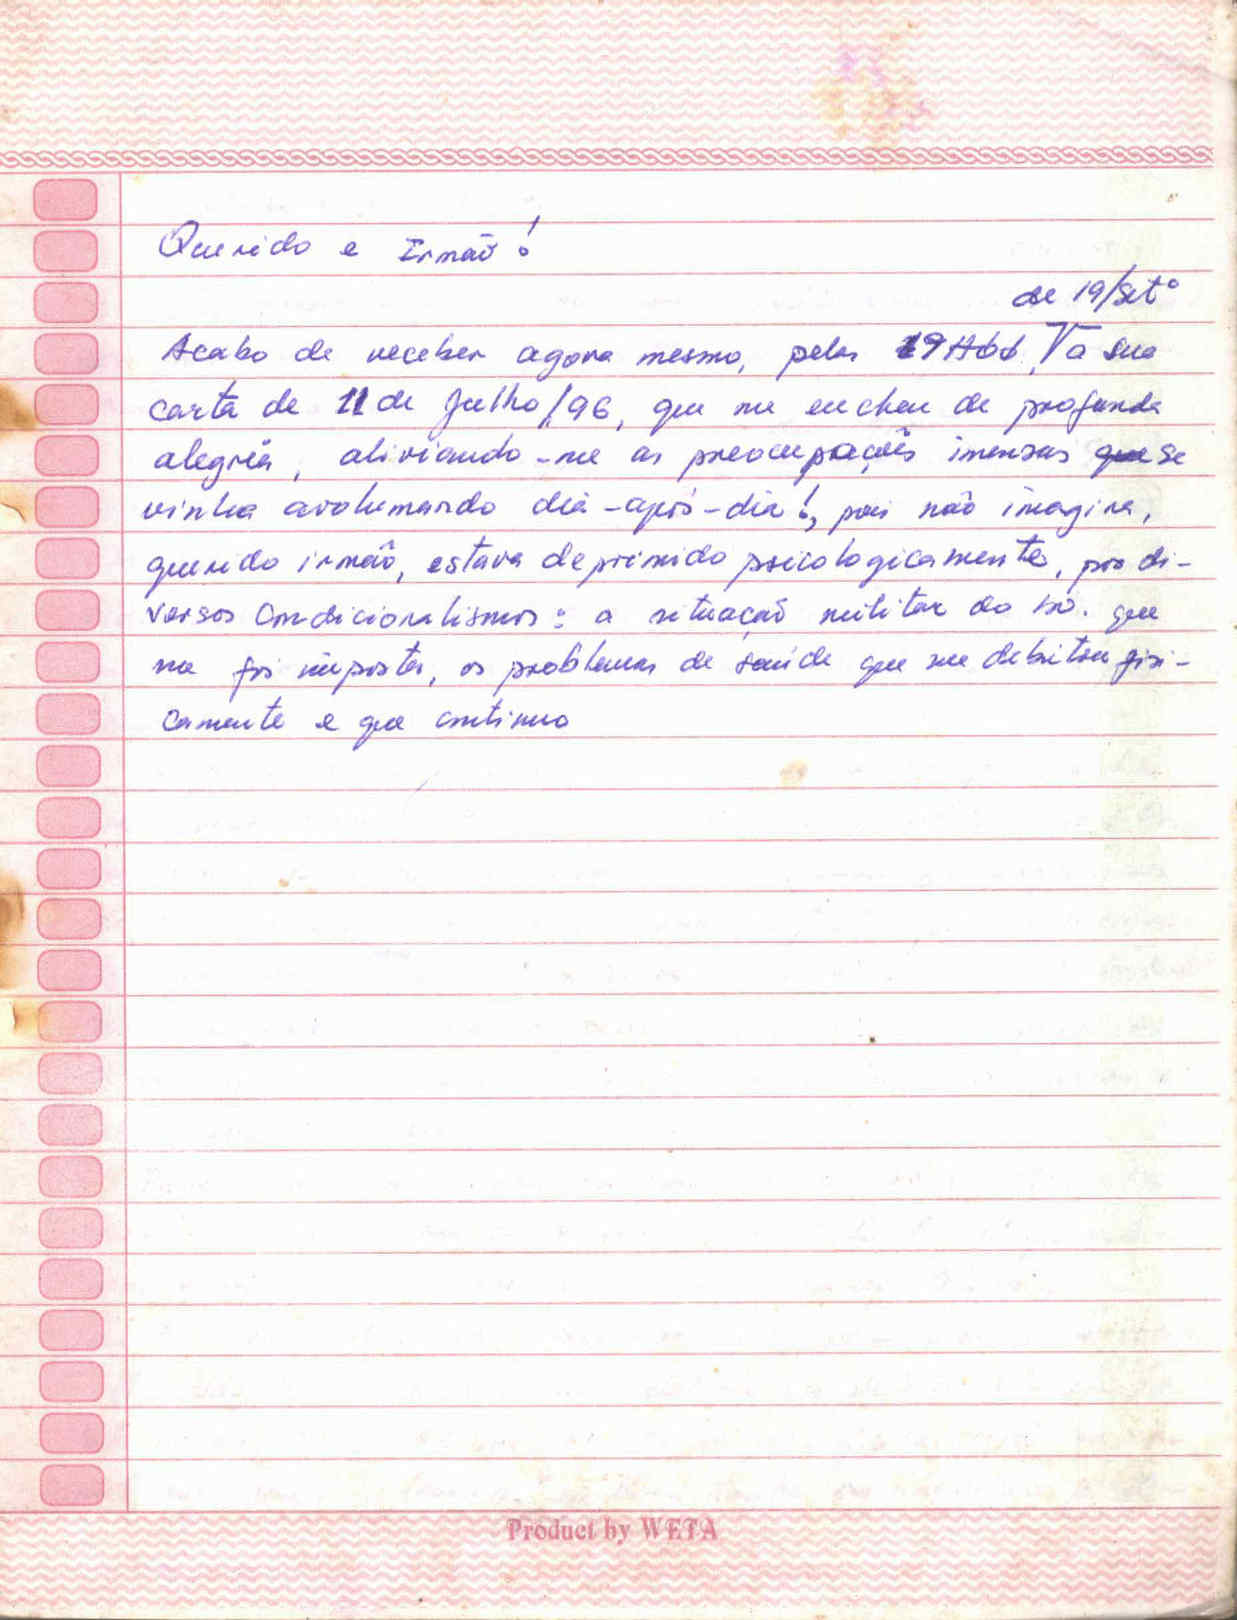 Querido e Irmão!
de 19/Setº
Acabo de receber agora mesmo, pelas 19H00, a sua
carta de 11 de Julho/96, que me encheu de profunda
alegria, aliviando-me as preocupações imensas que se
vinha avolumando dia-após-dia!, pois não imagina,
querido irmão, estava deprimido psicologicamente, por di-
versos condicionalismos: a situação militar do que
me foi imposta, os problemas de saúde que me debilitou fisi-
camente e que continuo
Product by WETA